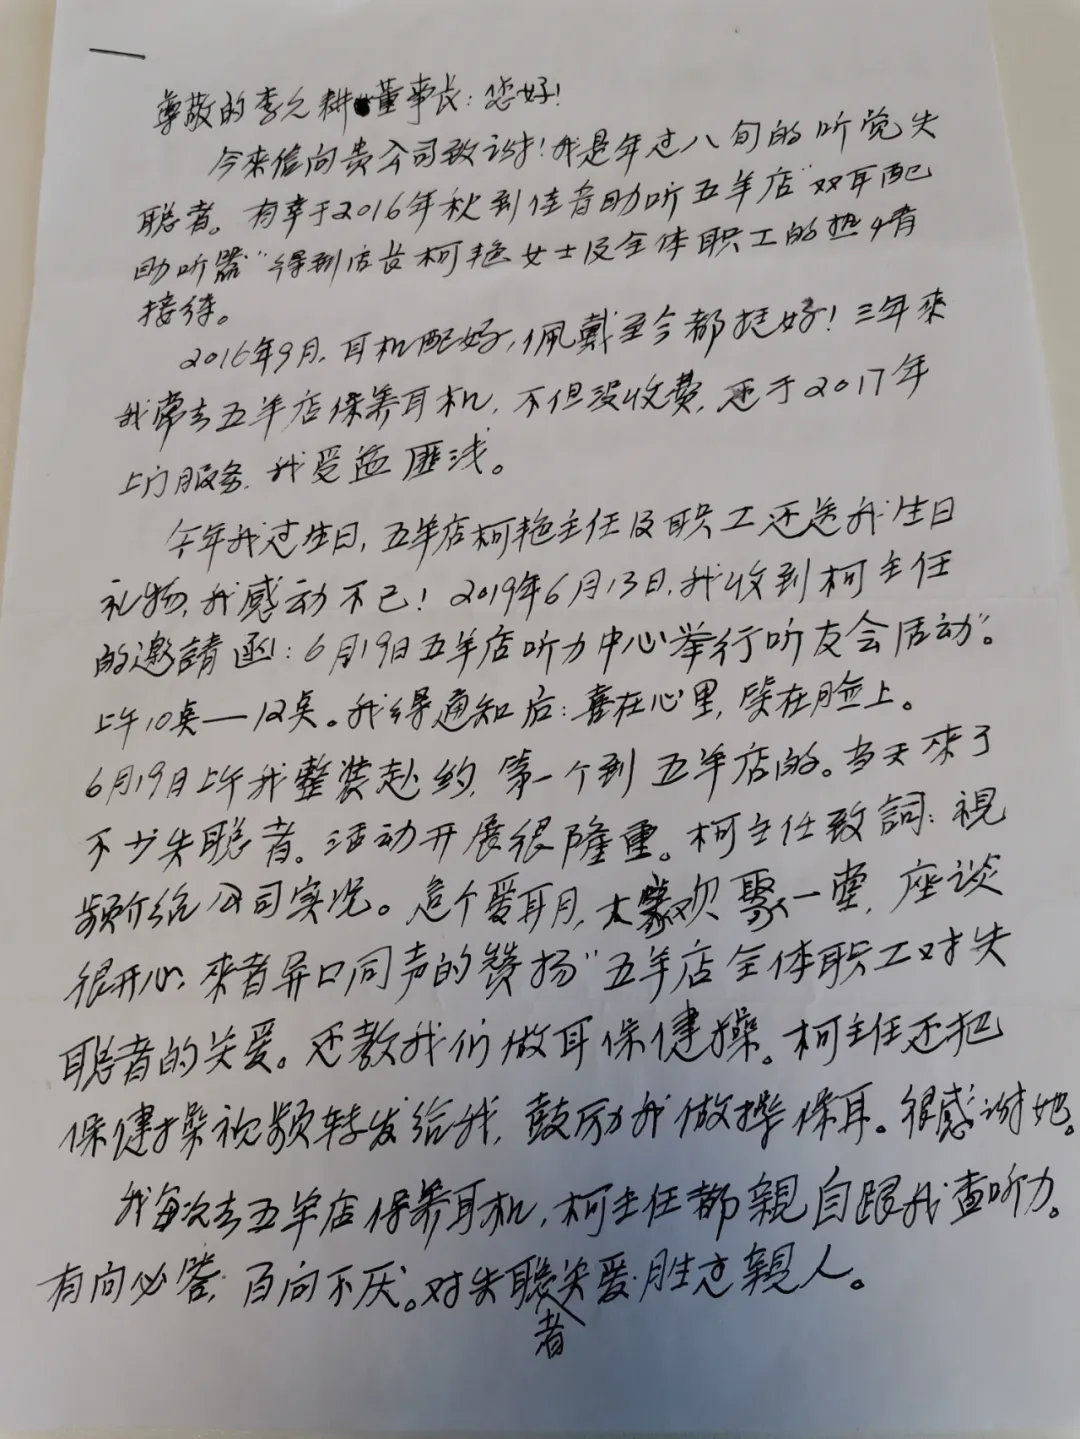 尊敬的李久耕董事长:您好!
今来信向贵公司致谢!我是年过八旬的听觉失
聪者。有幸于2016年秋到佳音助听五羊店"双耳配
助听器"得到店长柯艳女士及全体职工的热情
接待。
2016年9月,耳机配好,佩戴至今都挺好!三年来
我常去五羊店保养耳机,不但没收费,还于2017年
上门服务,我受益匪浅。
今年我过生日,五羊店柯艳主任及职工还送我生日
礼物,我感动不已!2019年6月13日,我收到柯主任
的邀請函:6月19日五羊店听力中心举行听友会活动"。
上午10奌—12奌。我得通知后:喜在心里,笑在脸上。
6月19日上午我整装赴约,第一个到五羊店的。当天來了
不少失聪者。活动开展很隆重。柯主任致詞:視
频介绍公司实况。这个爱耳月,大家欢聚一堂,座谈
很开心,來者异口同声的赞扬"五羊店全体职工对失
聪者的关爱。还教我们做耳保健操。柯主任还把
保健操视频转发给我,鼓励我做操保耳。很感谢她。
我每次去五羊店保养耳机,柯主任都親自跟我查听力。
有问必答,百问不厌。对失聪者关爱胜过親人。